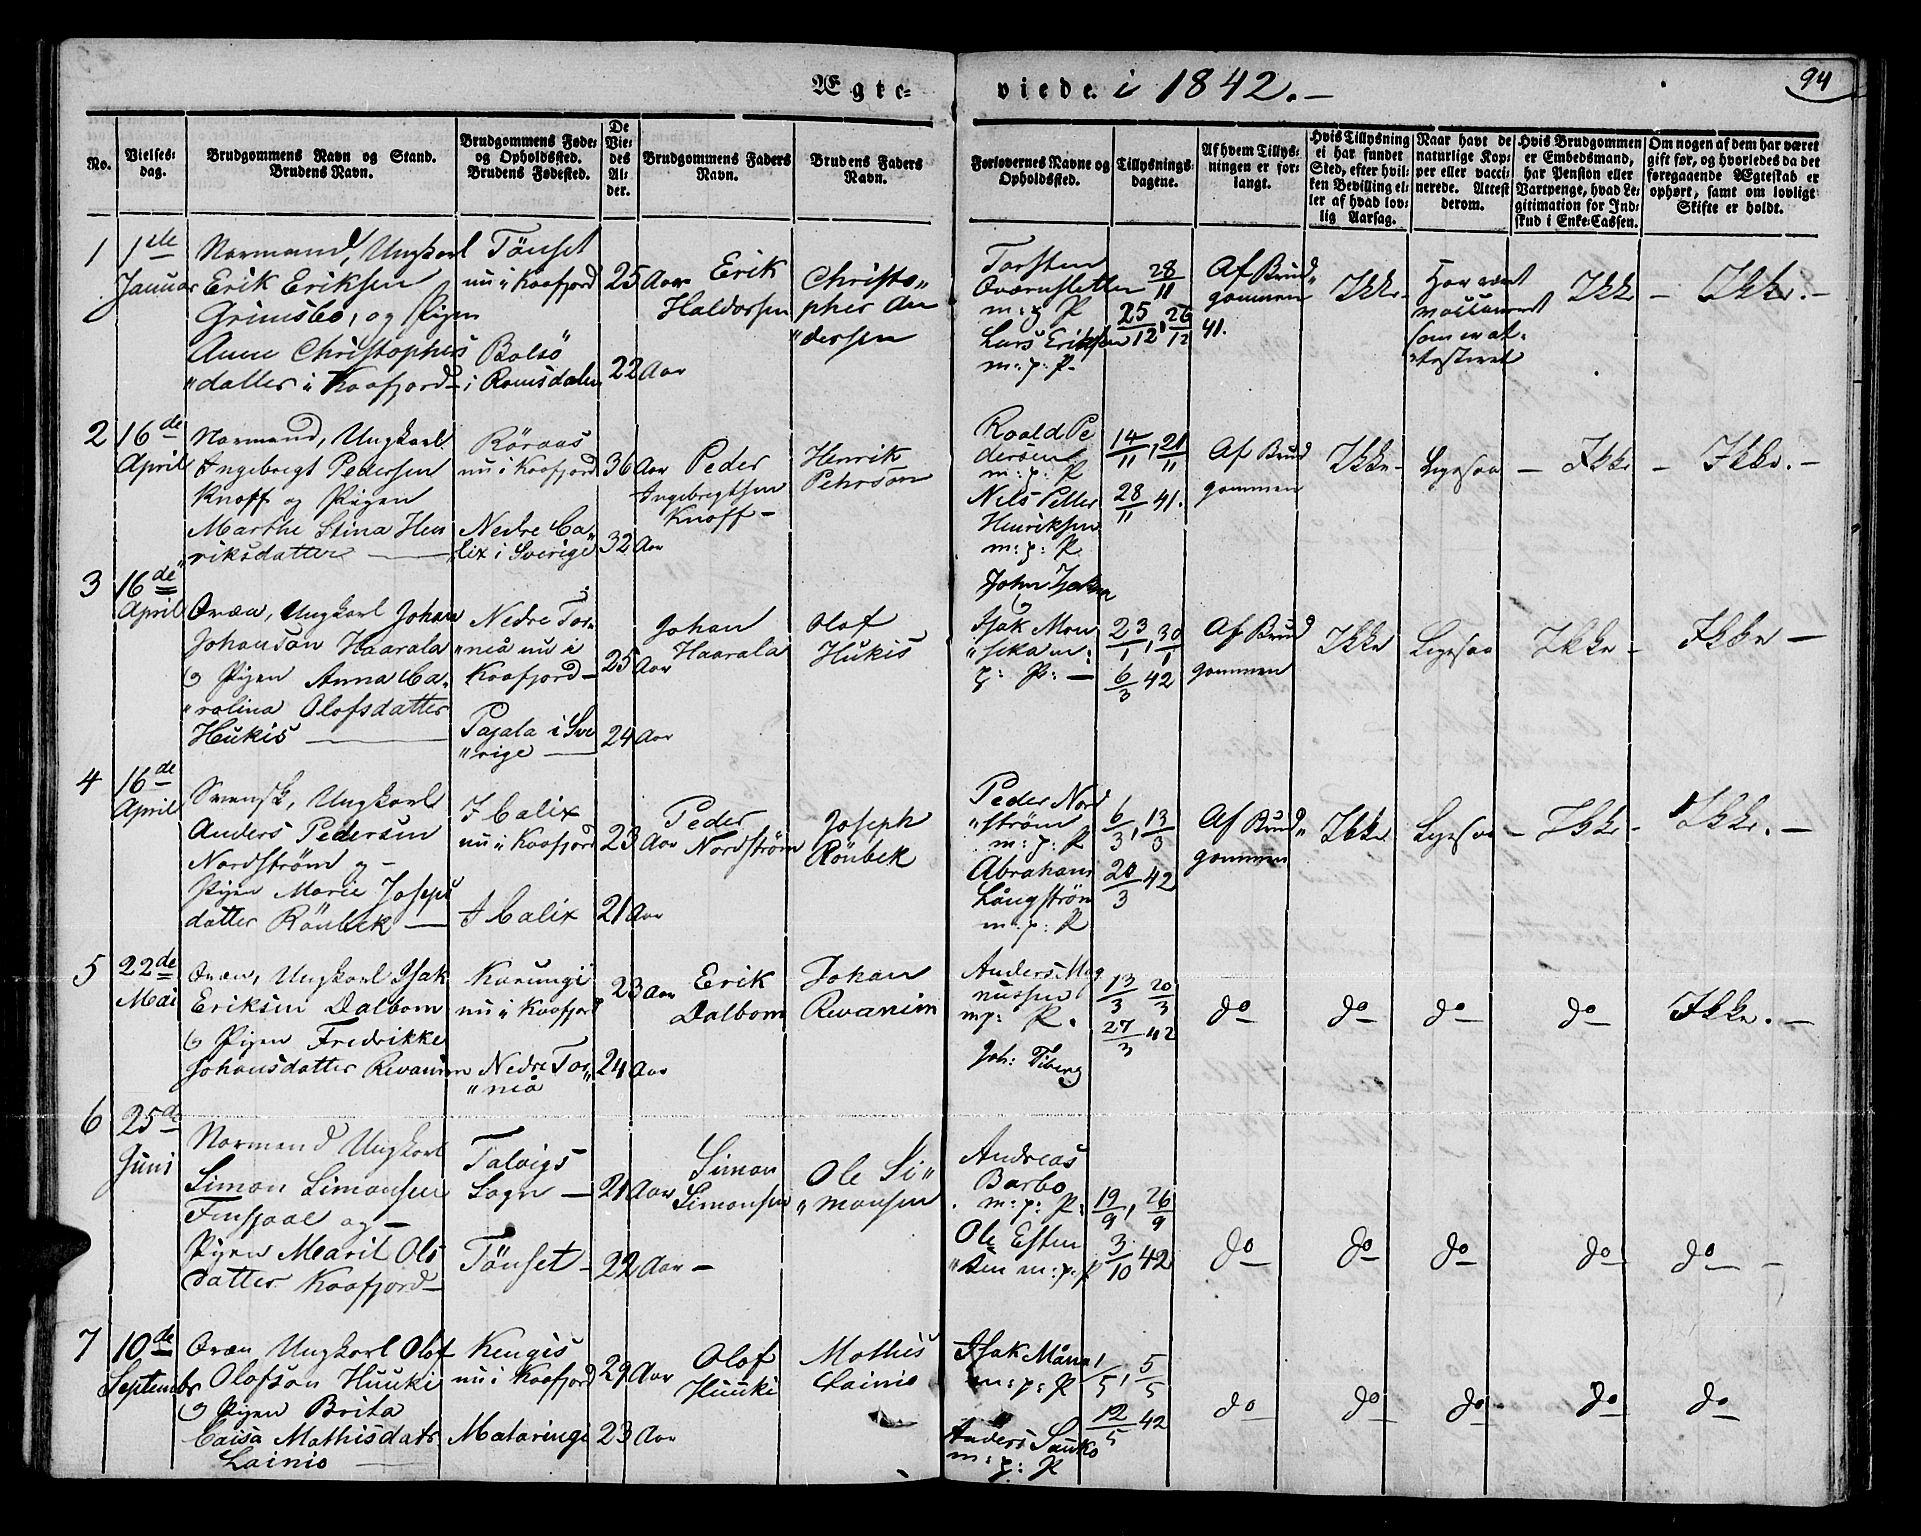 Ægte-
viede. i 1842.-
94
No.
Vielses-
dag.
Brudgommens Navn og Stand.
Brudens Navn.
Brudgommens Føde-
og Opholdssted.
Brudens Fødested.
De
Vie-
des
Al-
der.
Brudgommens Faders
Navn.
Brudens Faders
Navn.
Forlovernes Navne og
Opholdssted.
Tillysnings-
dagene.
Af hvem Tillys-
ningen er for-
langt.
Hvis Tillysning
ei har fundet
Sted, efter hvil-
ken Bevilling el-
ler af hvad lov-
lig Aarsag.
Naar havt de
naturlige Kop-
per eller vacci-
nerede. Attest
derom.
Hvis Brudgommen
er Embedsmand,
har Pension eller
Vartpenge, hvad Le-
gitimation for Ind-
skud i Enke-Cassen.
Om nogen af dem har været
gift før, og hvorledes da det
foregaaende Ægteskab er
ophørt, samt om lovligt
Skifte er holdt.
1
1ste
Januar
Normand, Ungkarl
Erik Eriksen
Grimsbo, og Pigen
Anne Christophers
"datter i Kaafjord-
Tönset
nu i Kaafjord
Bolsö
i Romsdalen
25 Aar
22 Aar
Erik
Haldorsen
Christo"
pher An
"dersen
Torsten
Oværnstetten
m: p P
Lars Eriksen
m: p: P-
28/11
25/12, 26/12 41.
Af Brud"
gommen
Ikke-
Har været
vaccineret
som er at-
"testeret
Ikke -
Ikke. -
2
16de
April
Normand, Ungkarl
Ingebregt Pedersen
Knoff og Pigen
Marthe Stina Hen
"riksdatter
Röraas
nu i Kaafjord
Nedre Ca"
lix i Sverige
36 Aar
32 Aar
Peder
Ingebregtsen
Knoff-
Henrik
Pehrson
Roald Pe
dersen
m: p: P
Nils Petter
Henriksen
m: p: P
14/11, 21/11
28/11 41.
Af Brud
gommen
Ikke-
Ligesaa -
Ikke -
Ikke. -
3
16de
April
Qvæn, Ungkarl Johan
Johanson Haarala
og Pigen Anna Ca-
"rolina Olofsdatter
Hukis
Nedre Tor-
"neå nu i
Kaafjord-
Pajala i Sve
"rige
25 Aar
24 Aar
Johan
Haarala
Olof
Hukis
John
Isak Mon
"ska m:
p: P: -
23/1, 30/1
6/3 42
Af Brud
gommen
Ikke
Ligesaa
Ikke -
Ikke -
4
16de
April
Svensk, Ungkarl
Anders Pedersen
Nordström og -
Pigen Marie Joseps
datter Rönbek
I Calix
nu i Kaafjord
I Calix
23 Aar
21 Aar
Peder
Nordström
Joseph
Rönbek
Peder Nord
"ström
m: p: P
Abraham
Långström
m: p: P
6/3, 13/3
20/3 42
Af Brud"
gommen
Ikke
Ligesaa -
Ikke -
Ikke. -
5
22de
Mai
Qvæn, Ungkarl Isak
Eriksen Dalbom
og Pigen Fredrikke
Johansdatter Revanien
Karungi
nu i Kaafjord
Nedre Tor"
"neå
23 Aar
24 Aar
Erik
Dalbom
Johan
Revanien
Anders Mag
nussen
mp: P.
Joh: Tiberg
13/3 20/3
27/3 42
do
do
do
do
Ikke. -
6
25de
Juni
Normand Ungkarl
Simon Simonsen
og -
Pigen Marit Ols
datter Kaafjord-
Talvigs
Sogn -
Tönset -
21 Aar
22 Aar -
Simon
Simonsen
Ole Si"
"monsen
Andreas
Barbo
m: p: P:
Ole Esten
"sen m: p: P
19/9, 26/9
3/10 42
do
do
do
do
do -
7
10de
Septembr
Qvæn Ungkarl Olof
Olofson Huuki
og Pigen Brita
Caisa Mathisdatr
Lainio
Kengis
nu i Kaafjord
Mataringi
29 Aar
23 Aar
Olof
Huuki
Mathis
Lainio
Isak Måna
m: p: P
Anders Sauko
m: p: P
1/5, 5/5
12/5 42
do
do
do
do
do